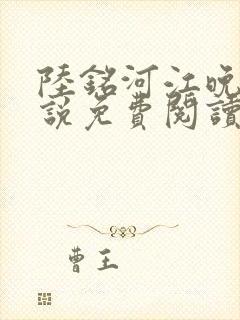 陸銘河江晚
說免費閱讀
曹王